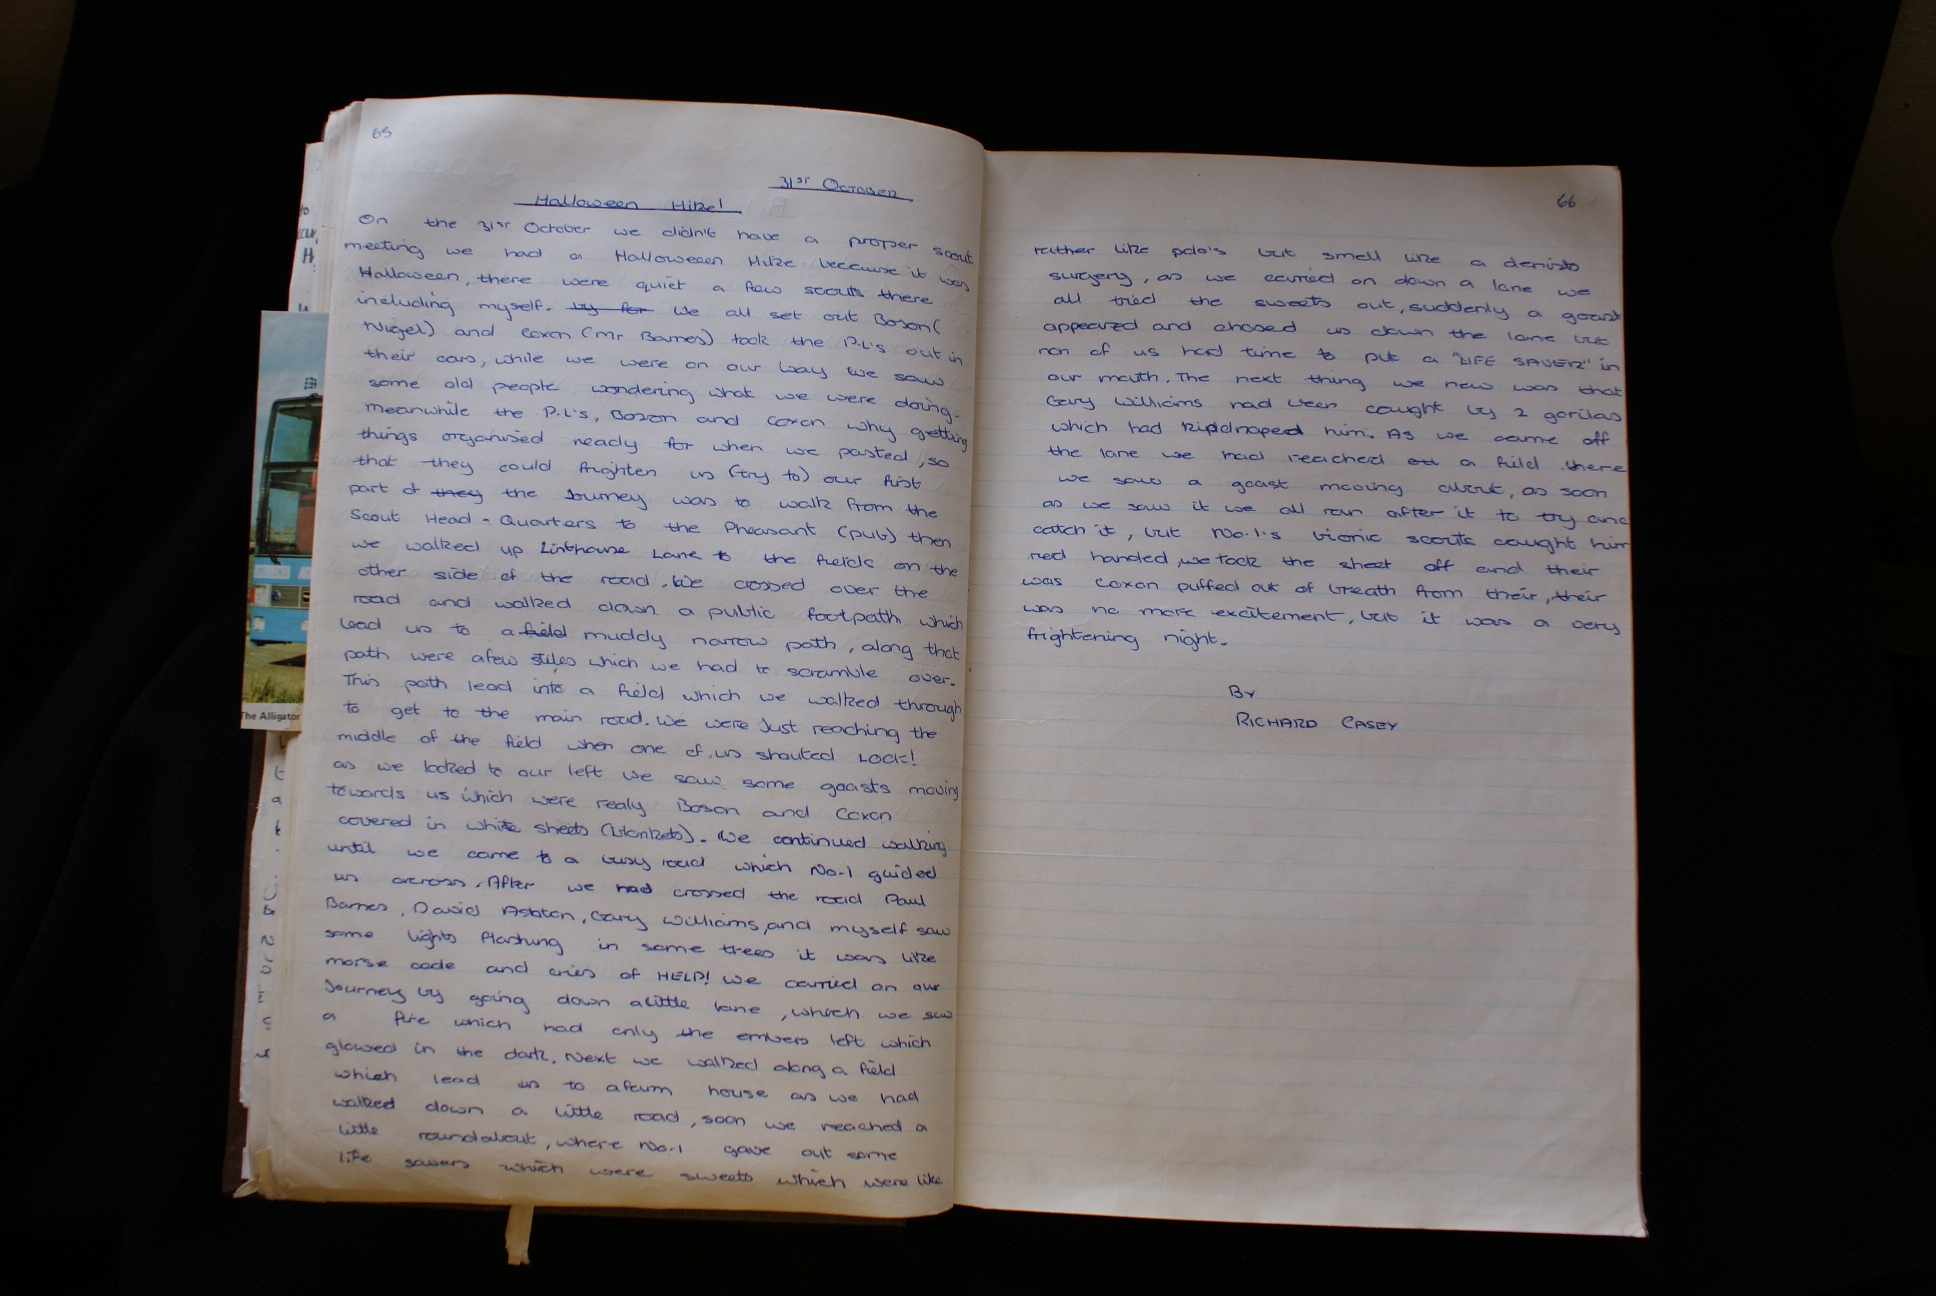 65
31ST OCTOBER
Halloween Hike!
On the 31st October we didn't have a proper scout
meeting we had a Halloween Hike because it was
Halloween, there were quiet a few scouts there
including myself. by for We all set out Boson(
Nigel) and Coxon (Mr Barnes) took the P.L's out in
their cars, while we were on our way we saw
some old people wondering what we were doing.
meanwhile the P.L's, Boson and Coxon why getting
things organised ready for when we pasted, so
that they could frighten us (try to) our first
part of they the Journey was to walk from the
Scout Head-Quarters to the Pheasant (pub) then
we walked up Linthouse Lane to the fields on the
other side of the road. We crossed over the
road and walked down a public footpath which
lead us to a field muddy narrow path, along that
path were afew stiles which we had to scramble over.
This path lead into a field which we walked through
to get to the main road. We were Just reaching the
middle of the field when one of us shouted Look!
as we looked to our left we saw some goasts moving
towards us which were realy Boson and Coxon
covered in white sheets (blankets). We continued walking
until we came to a busy road which No.1 guided
us across. After we had crossed the road Paul
Barnes, David Ashton, Gary Williams, and myself saw
some lights flashing in some trees it was like
morse code and cries of HELP! We carried on our
Journey by going down a little lane, which we saw
a fire which had only the embers left which
glowed in the dark. Next we walked along a field
which lead us to afarm house as we had
walked down a little road, soon we reached a
little roundabout, where No.1 gave out some
life savers which were sweets which were like
The Alligator
66
rather like polo's but smell like a denists
surgery, as we carried on down a lane we
all tried the sweets out, suddenly a goast
appeared and chased us down the lane but
non of us had time to put a "LIFE SAVER" in
our mouth. The next thing we new was that
Gary Williams had been caught by 2 gorilas
which had kidnaped him. As we came off
the lane we had reached a field there
we saw a goast moving about, as soon
as we saw it we all ran after it to try and
catch it, but No.1's bionic scouts caught him
red handed, we took the sheet off and their
was Coxon puffed out of breath from their, their
was no more excitement, but it was a very
frightening night.
BY
RICHARD CASEY